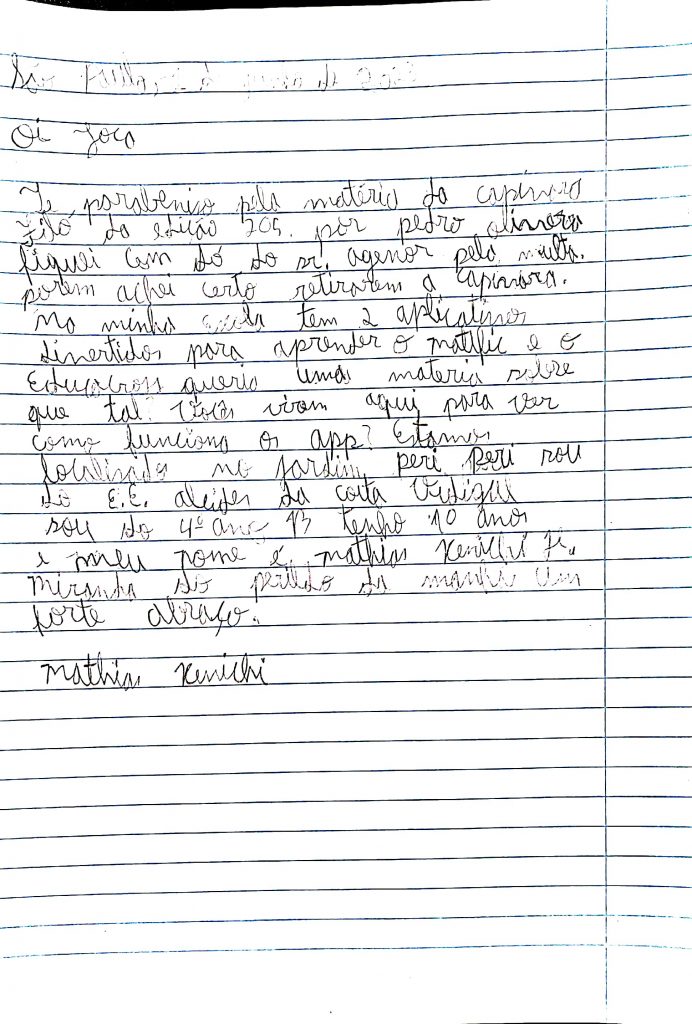 São
Oi Joca
Te parabeniso pela matéria da capivara
Filó da edição 205. por pedro oliveira
fiquei com dó do sr. agenor pela multa.
porem achei certo retirarem a capivara.
Na minha escola tem 2 aplicativos
divertidos para aprender o matific e o
Educacross queria uma materia sobre
que tal? Vocês viram aqui para ver
como funciona os app? Estamos
localizados no jardim peri peri sou
do E.E. alcides da costa Vidigal
sou do 4º ano B tenho 10 anos
e meu nome é mathias Kenichi
miranda do período da manhã um
forte abraço.
Mathias Kenichi